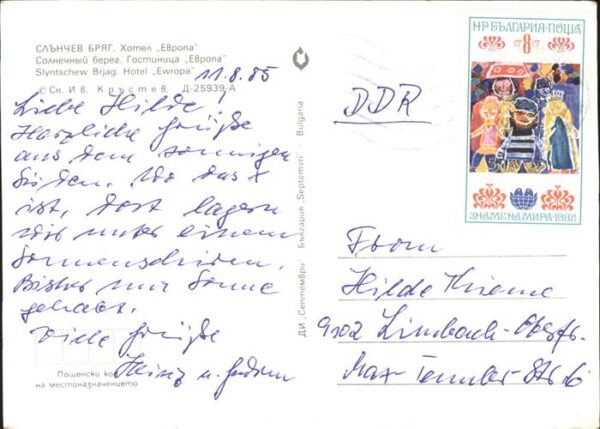 СЛЪНЧЕВ БРЯГ. Хотел „Европа“
Солнечный берег. Гостиница „Европа“
Slyntschew Brjag. Hotel „Ewropa“
© Сн. Ив. Кръстев Д-25939-А
11.8.85
Liebe Hilde!
Herzliche Grüße
aus dem sonnigen
Süden. Wo das X
ist, dort lagern
wir unter einem
Sonnenschirm.
Bisher nur Sonne
gehabt.
Viele Grüße
Heinz u. Gudrun
Пощенски ко
на местоназначението
ДИ „Септември“ България „Septemvri“ Bulgaria
НР БЪЛГАРИЯ·ПОЩА
8 СТ
ЗНАМЕ НА МИРА·1982
DDR
Frau
Hilde Thieme
9102 Limbach-Obfr.
Max-Str. 16